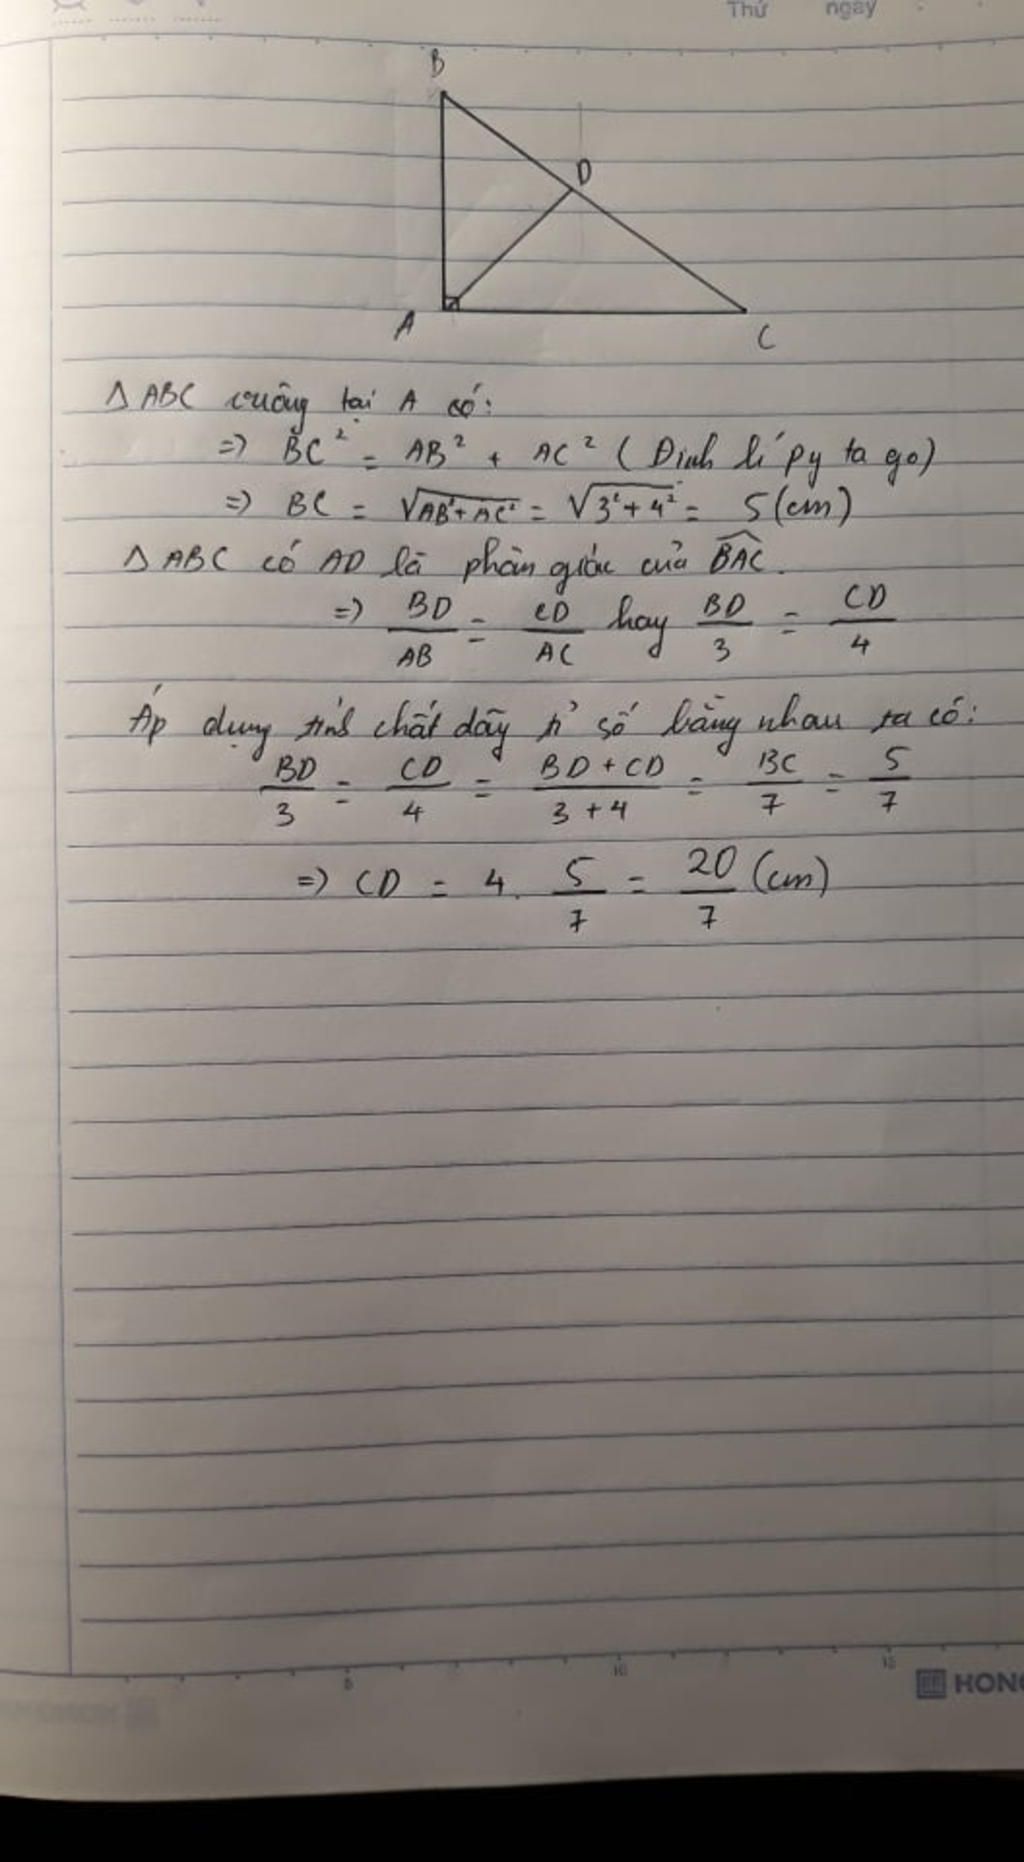 Thứ ngày
B
D
A
C
Δ ABC vuông tại A có:
=> BC² = AB² + AC² ( Định lí py ta go)
=> BC = √AB²+AC² = √3²+4² = 5 (cm)
Δ ABC có AD là phân giác của BAC.
=> BD/AB = CD/AC hay BD/3 = CD/4
Áp dụng tính chất dãy tỉ số bằng nhau ta có:
BD/3 = CD/4 = BD+CD/3+4 = BC/7 = 5/7
=> CD = 4. 5/7 = 20/7 (cm)
5 10 15
HONG